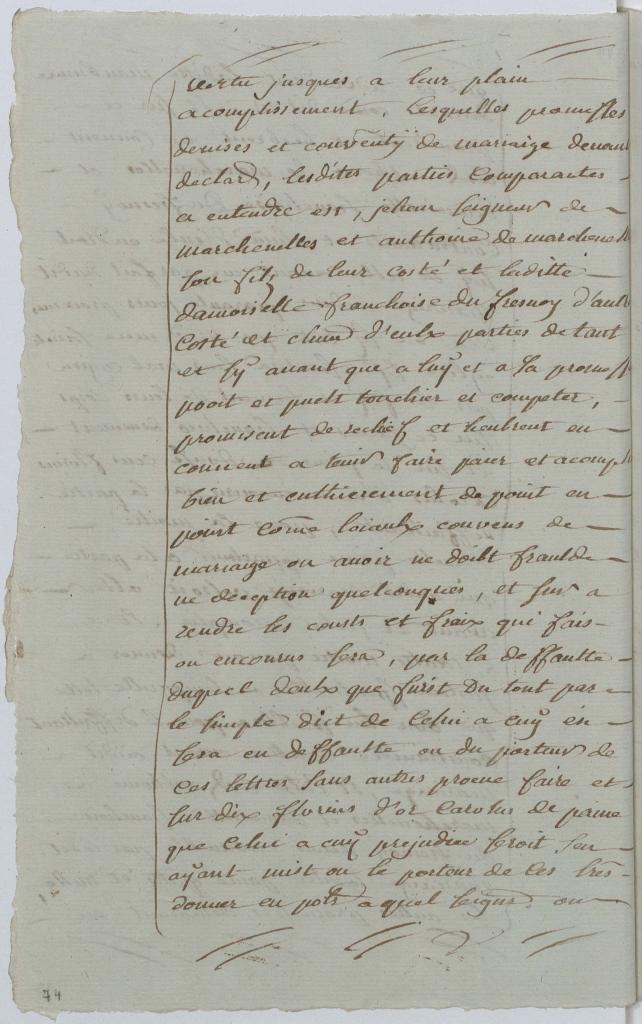 vertu jusques a leur plain
acomplissement, lesquelles promesses
devises et conventz de mariaige devant
declard, lesdites parties Comparantes
a entendre est, jehan seigneur de
marchenelles et anthoine de marchenell
son filz de leur costé et laditte
damoiselle franchoise du fresnoy d'aul
Costé et chun d'eulx parties de tant
et sÿ avant que a luÿ et a sa promess
pooit et puelt touchier et competer,
promisent de rechief et heubrent en
convent a tenir faire paier et acomp
bien et enthierement de point en
point Come loiaulx convens de
mariaige ou avoir ne doibt fraulde
ne deception quelconques, et sur a
rendre les cousts et fraix qui fais
ou encourus sera, par la deffaulte
duquel deulx que fuist du tout par
le simple dict de Celui a cuÿ en
sera en deffaulte ou du porteur de
Ces lettres sans aultres proeve faire et
sur dix florins d'or Carolus de paine
que Celui a cuÿ prejudice seroit sen
aÿant mist ou le porteur de Ces lres
donner en polt a quel seignr ou
74